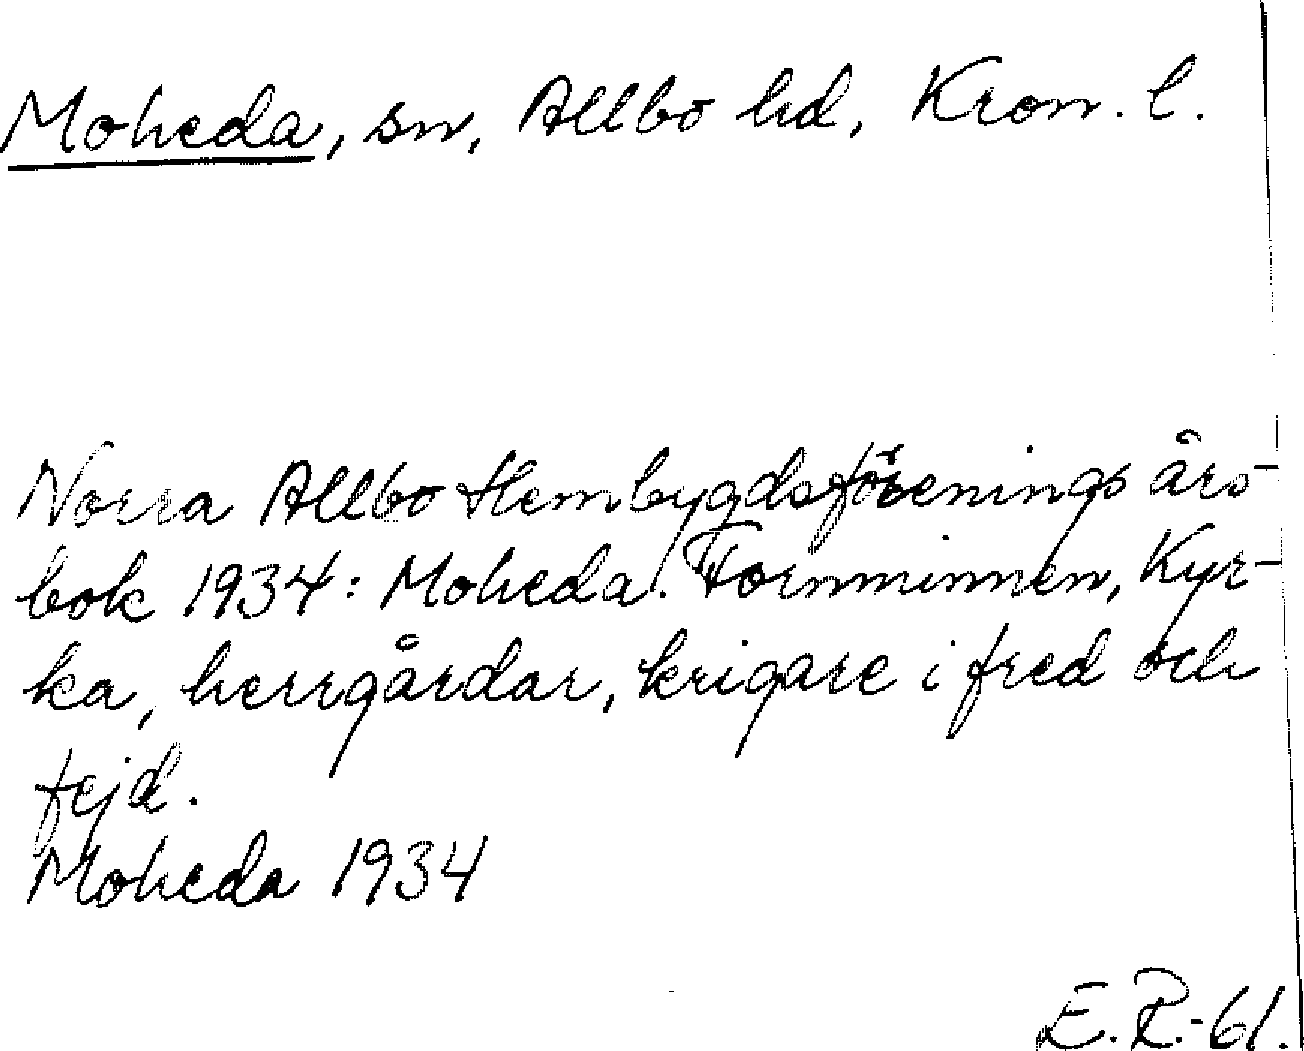 Moheda, sn, Allbo hd, Kron. l.
Norra Allbo Hembygdsförenings års-
bok 1934: Moheda. Fornminnen, Kyr-
ka, herrgårdar, krigare i fred och
fejd.
Moheda 1934
E.R.-61.